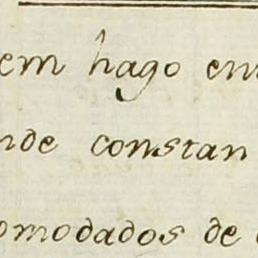 em hago en
nde constan
omodados de